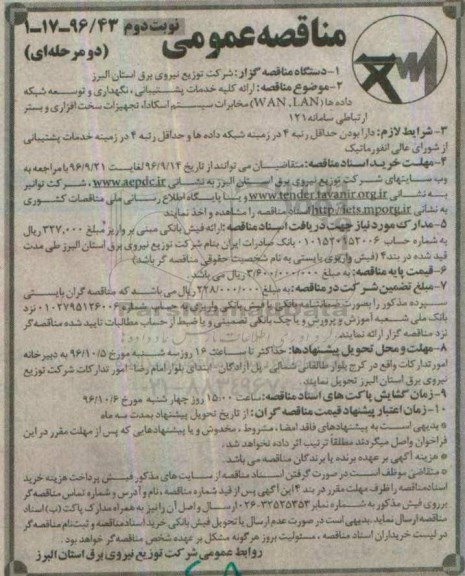 مناقصه عمومی
نوبت دوم ۹۶/۴۳-۱۷-۱
(دو مرحله‌ای)
۱-دستگاه مناقصه گزار: شرکت توزیع نیروی برق استان البرز
۲-موضوع مناقصه: ارائه کلیه خدمات پشتیبانی، نگهداری و توسعه شبکه
داده ها (WAN، LAN) مخابرات سیستم اسکادا، تجهیزات سخت افزاری و بستر
ارتباطی سامانه ۱۲۱
۳-شرایط لازم: دارا بودن حداقل رتبه ۴ در زمینه شبکه داده ها و حداقل رتبه ۴ در زمینه خدمات پشتیبانی
از شورای عالی انفورماتیک
۴-مهلت خرید اسناد مناقصه: متقاضیان می توانند از تاریخ ۹۶/۹/۱۴ لغایت ۹۶/۹/۲۱ با مراجعه به
وب سایتهای شرکت توزیع نیروی برق استان البرز به نشانی www.aepdc.ir، شرکت توانیر
به نشانی www.tender.tavanir.org.ir و یا پایگاه اطلاع رسانی ملی مناقصات کشوری
به نشانی http://iets.mporg.ir اسناد مناقصه را مشاهده و اخذ نمایند
۵-مدارک مورد نیاز جهت دریافت اسناد مناقصه: ارائه فیش بانکی مبنی بر واریز مبلغ ۳۲۷,۰۰۰ ریال
به شماره حساب ۰۱۰۱۵۲۰۹۵۲۰۰۶ بانک صادرات ایران بنام شرکت توزیع نیروی برق استان البرز طی مدت
قید شده در بند ۴ (فیش واریزی بایستی به نام شخصیت حقوقی مناقصه گر باشد)
۶-قیمت پایه مناقصه: به مبلغ ۳/۶۰۰/۰۰۰/۰۰۰ ریال می باشد.
۷-مبلغ تضمین شرکت در مناقصه: به مبلغ ۲۲۸/۰۰۰/۰۰۰ ریال می باشد که مناقصه گران بایستی
سپرده مذکور را بصورت ضمانتنامه بانکی یا فیش بانکی واریزی به حساب شماره ۰۱۰۲۷۹۵۱۲۶۰۰۶ نزد
بانک ملی شعبه آموزش و پرورش و یا چک بانکی تضمینی و یا ضبط از حساب مطالبات تایید شده مناقصه گر
نزد مناقصه گزار ارائه نمایند.
۸-مهلت و محل تحویل پیشنهادها: حداکثر تا ساعت ۱۶ روز سه شنبه مورخ ۹۶/۱۰/۵ به دبیرخانه
امور تدارکات واقع در کرج بلوار طالقانی شمالی - پل آزادگان - ابتدای بلوار امام رضا - امور تدارکات شرکت توزیع
نیروی برق استان البرز تحویل نمایند.
۹-زمان گشایش پاکت های اسناد مناقصه: ساعت ۱۵:۰۰ روز چهار شنبه مورخ ۹۶/۱۰/۶
۱۰-زمان اعتبار پیشنهاد قیمت مناقصه گران: از تاریخ تحویل پیشنهاد بمدت سه ماه
* بدیهی است به پیشنهادهای فاقد امضا، مشروط، مخدوش و یا پیشنهادهایی که پس از مهلت مقرر در این
فراخوان واصل میگردند مطلقا ترتیب اثر داده نخواهد شد.
* هزینه آگهی بر عهده برنده یا برندگان مناقصه می باشد.
* متقاضی موظف است در صورت گرفتن اسناد مناقصه از سایت های مذکور فیش پرداخت هزینه خرید
اسناد مناقصه را ظرف مهلت مقرر در بند ۴ این آگهی پس از قید شماره مناقصه، نام و آدرس و شماره تماس مناقصه گر
بر روی فیش مذکور به شماره نمابر ۳۲۵۲۵۳۵۳-۰۲۶ ارسال و اصل آن را نیز به همراه مدارک پاکت (ب) اسناد
مناقصه ارسال نماید. بدیهی است در صورت عدم ارسال یا تحویل فیش بانکی خرید اسناد مناقصه و ثبت نام مناقصه گر
در لیست خریداران اسناد مناقصه، مسئولیت بروز هر گونه مشکل بر عهده شخص مناقصه گر خواهد بود.
روابط عمومی شرکت توزیع نیروی برق استان البرز